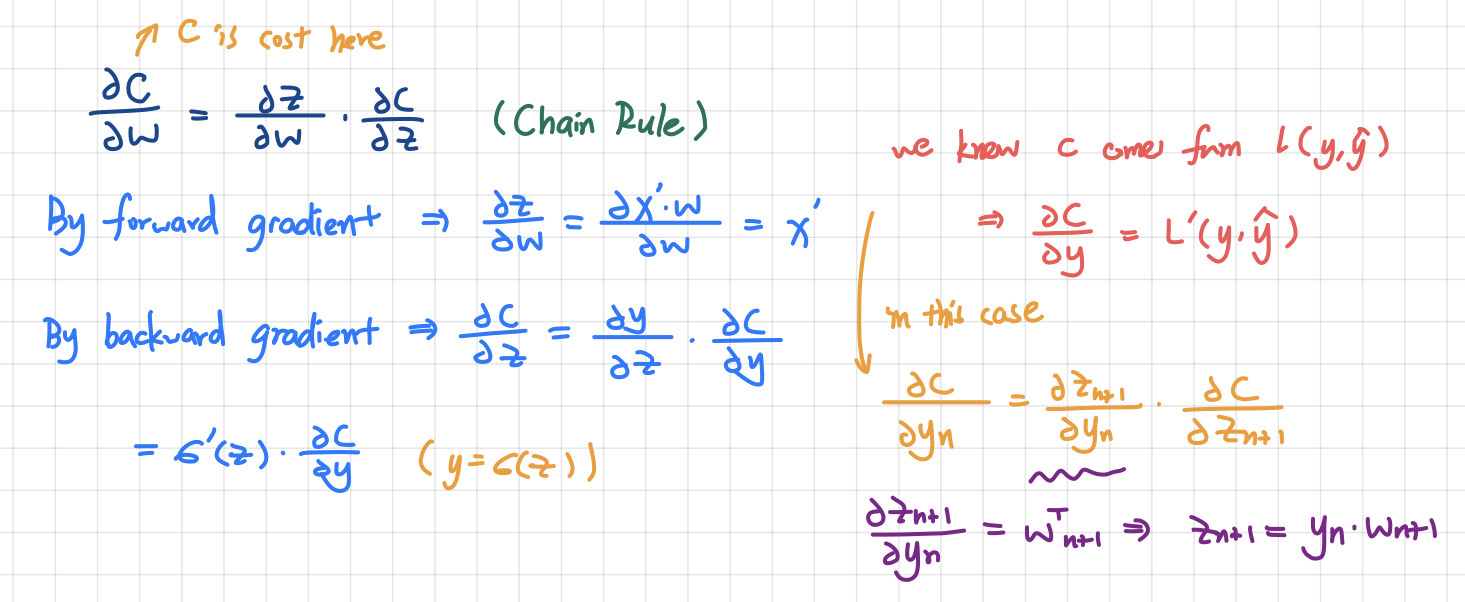 C is cost here
∂C/∂w = ∂z/∂w · ∂C/∂z (Chain Rule)
By forward gradient ⇒ ∂z/∂w = ∂x'·w/∂w = x'
By backward gradient ⇒ ∂C/∂z = ∂y/∂z · ∂C/∂y
= σ'(z) · ∂C/∂y (y = σ(z))
we know C comes from L(y, ŷ)
⇒ ∂C/∂y = L'(y, ŷ)
in this case
∂C/∂yₙ = ∂zₙ₊₁/∂yₙ · ∂C/∂zₙ₊₁
∂zₙ₊₁/∂yₙ = wᵀₙ₊₁ ⇒ zₙ₊₁ = yₙ · wₙ₊₁